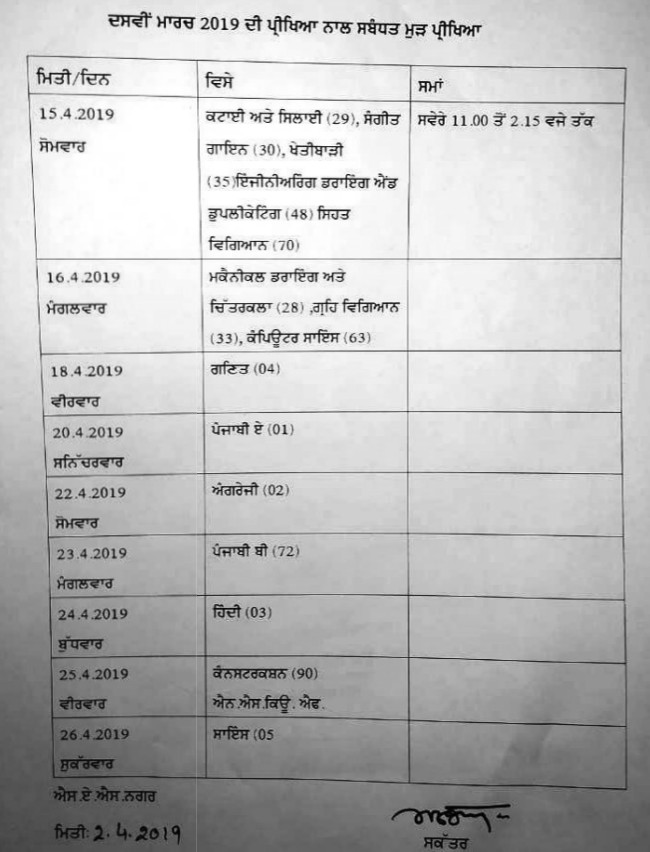 ਦਸਵੀਂ ਮਾਰਚ 2019 ਦੀ ਪ੍ਰੀਖਿਆ ਨਾਲ ਸਬੰਧਤ ਮੁੜ ਪ੍ਰੀਖਿਆ
ਮਿਤੀ/ਦਿਨ ਵਿਸੇ ਸਮਾਂ
15.4.2019 ਕਟਾਈ ਅਤੇ ਸਿਲਾਈ (29), ਸੰਗੀਤ ਸਵੇਰੇ 11.00 ਤੋਂ 2.15 ਵਜੇ ਤੱਕ
ਸੋਮਵਾਰ ਗਾਇਨ (30), ਖੇਤੀਬਾੜੀ
(35)ਇੰਜੀਨੀਅਰਿੰਗ ਡਰਾਇੰਗ ਐਂਡ
ਡੁਪਲੀਕੇਟਿੰਗ (48) ਸਿਹਤ
ਵਿਗਿਆਨ (70)
16.4.2019 ਮਕੈਨੀਕਲ ਡਰਾਇੰਗ ਅਤੇ
ਮੰਗਲਵਾਰ ਚਿੱਤਰਕਲਾ (28) ,ਗ੍ਰਹਿ ਵਿਗਿਆਨ
(33), ਕੰਪਿਊਟਰ ਸਾਇੰਸ (63)
18.4.2019 ਗਣਿਤ (04)
ਵੀਰਵਾਰ
20.4.2019 ਪੰਜਾਬੀ ਏ (01)
ਸਨਿੱਚਰਵਾਰ
22.4.2019 ਅੰਗਰੇਜੀ (02)
ਸੋਮਵਾਰ
23.4.2019 ਪੰਜਾਬੀ ਬੀ (72)
ਮੰਗਲਵਾਰ
24.4.2019 ਹਿੰਦੀ (03)
ਬੁੱਧਵਾਰ
25.4.2019 ਕੰਨਸਟਰਕਸ਼ਨ (90)
ਵੀਰਵਾਰ ਐਨ.ਐਸ.ਕਿਊ. ਐਫ.
26.4.2019 ਸਾਇੰਸ (05
ਸੁਕੱਰਵਾਰ
ਐਸ.ਏ.ਐਸ.ਨਗਰ
ਮਿਤੀ: 2.4.2019
ਸਕੱਤਰ